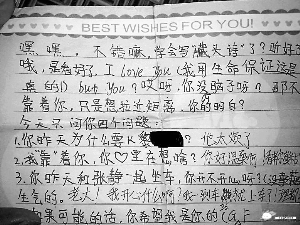 BEST WISHES FOR YOU!
嘿嘿，不能嘛，学会写"藏头诗"了？听好了
哦，是看好了，I Love You (我用生命保证这是
真的) but You? 哎哟，你没脑子呀？那不
靠着你，只是想拉近距离，你的明白？
今天只问你四个问题：
1.你昨天为什么要K黎 ？他太烦了
2.我靠着你，你♡里在想啥？
3.你昨天和张静一起坐车，你开不开心呀？
生气的。老大！我开心什么啊？我一到车
如果可能的话，你希望我是你的(GF